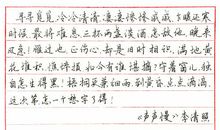 寻寻觅觅冷冷清清凄凄惨惨戚戚乍暖还寒
时候最难将息三杯两盏淡酒怎敌他晚来
风急雁过也正伤心却是旧时相识满地黄
花堆积憔悴损如今有谁堪摘守着窗儿独
自怎生得黑梧桐更兼细雨到黄昏点点滴滴
这次第怎一个愁字了得
《声声慢》李清照